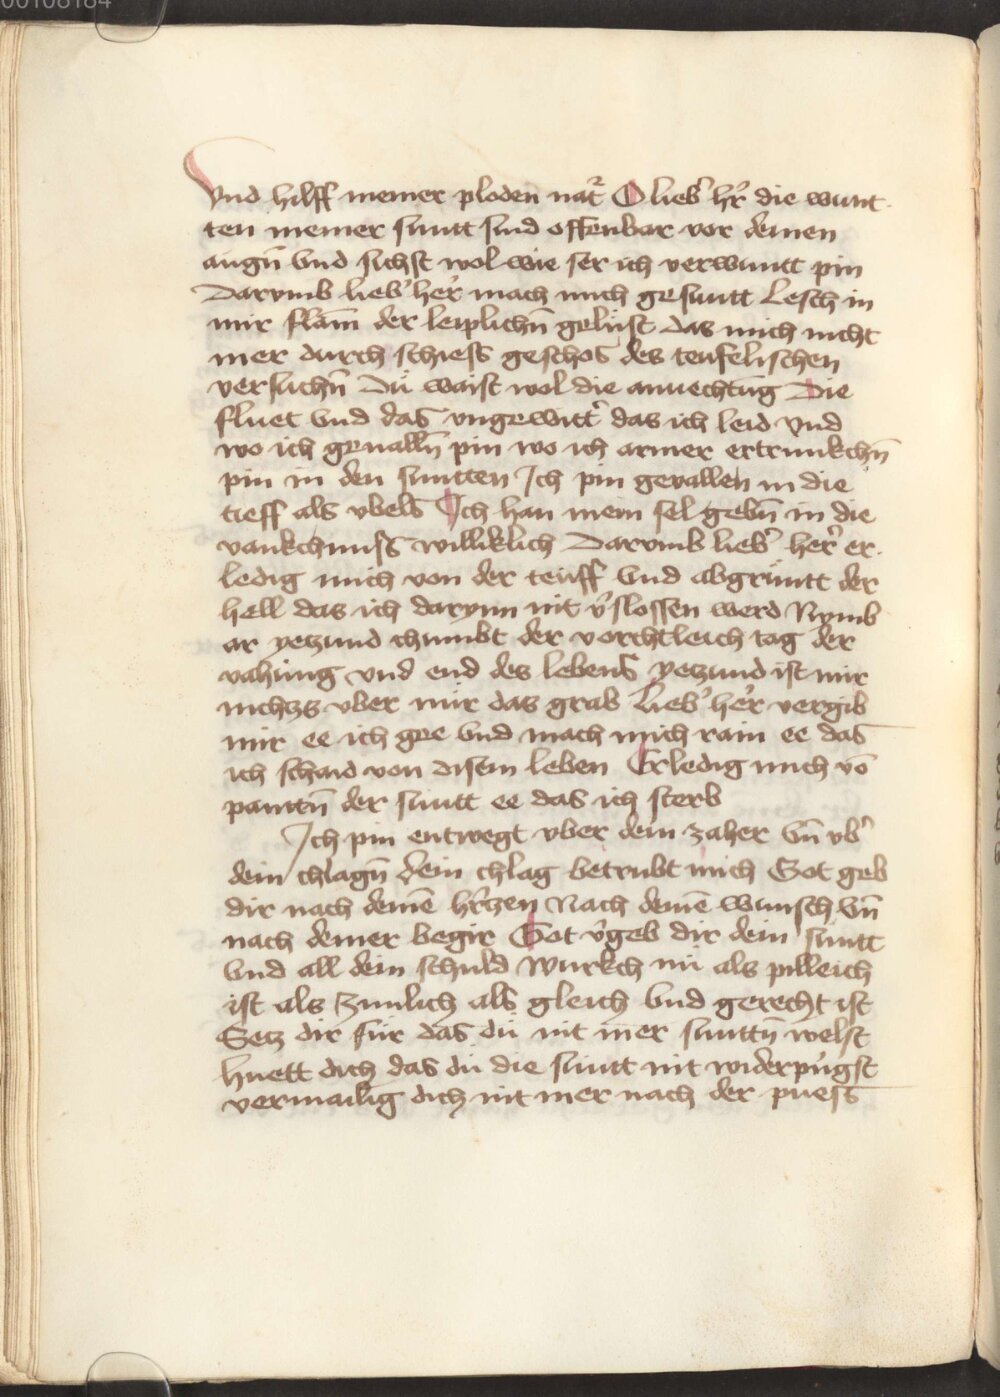 00108184
Vnd hilff meiner ploden natr̄ O lieb̾ hr̄ die wunt
ten meiner suntt sind offenbar vor deinen
augn̄ vnd sichst wol wie ser ich verwuntt pin
Darvmb lieb̾ her̄ mach mich gesuntt Lesch in
mir flam̄ der leiplichn̄ gelüst das mich nicht
mer durch schiess geschos des teufelischen
versuchn̄ Dü waist wol die anuechtūg Die
fluet vnd das vngewitt̾ das ich leid vnd
wo ich geualln̄ pin wo ich armer ertrunkchn̄
pin in den suntten Ich pin gevallen in die
tieff als vbels Ich han mein sel gebn̄ in die
vankchnuss williklich Darvmb lieb̾ her̄ er
ledig mich von der teuff vnd abgrüntt der
hell das ich darynn nit v̾slossen werd Nymb
ar yetzund chumbt der vorchtleich tag der
vahüng vnd end des lebens yetzund ist mir
nichtzs vber mir das grab Lieb̾ her̄ vergib
mir ee ich gee vnd mach mich rain ee das
ich schaid von disem leben Erledig mich vō
panttn̄ der suntt ee das ich sterb
Ich pin entwegt vber dein zaher vn̄ vb̾
dein chlagn̄ dein chlag betrubt mich Got geb
dir nach deinē hr̄tzen Nach deinē wunsch vn̄
nach deiner begir Got v̾geb dir dein suntt
vnd all dein schuld wurkch nü als pilleich
ist als zimlich als gleich vnd gerecht ist
Setz dir für das dü nit m̄er suntn̄ welst
huett dich das dü die suntt nit widerpringst
vermailig dich nit mer nach der puess